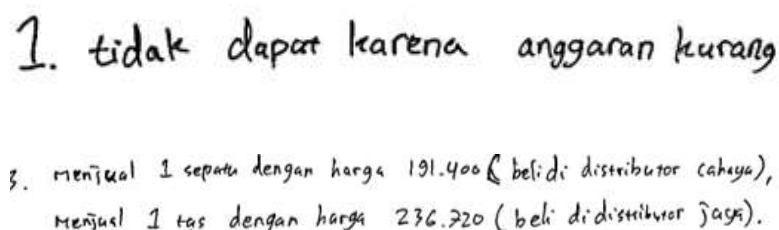 1. tidak dapat karena anggaran kurang
3. menjual 1 sepatu dengan harga 191.400 ( beli di distributor cahaya),
menjual 1 tas dengan harga 236.720 ( beli di distributor jaya).